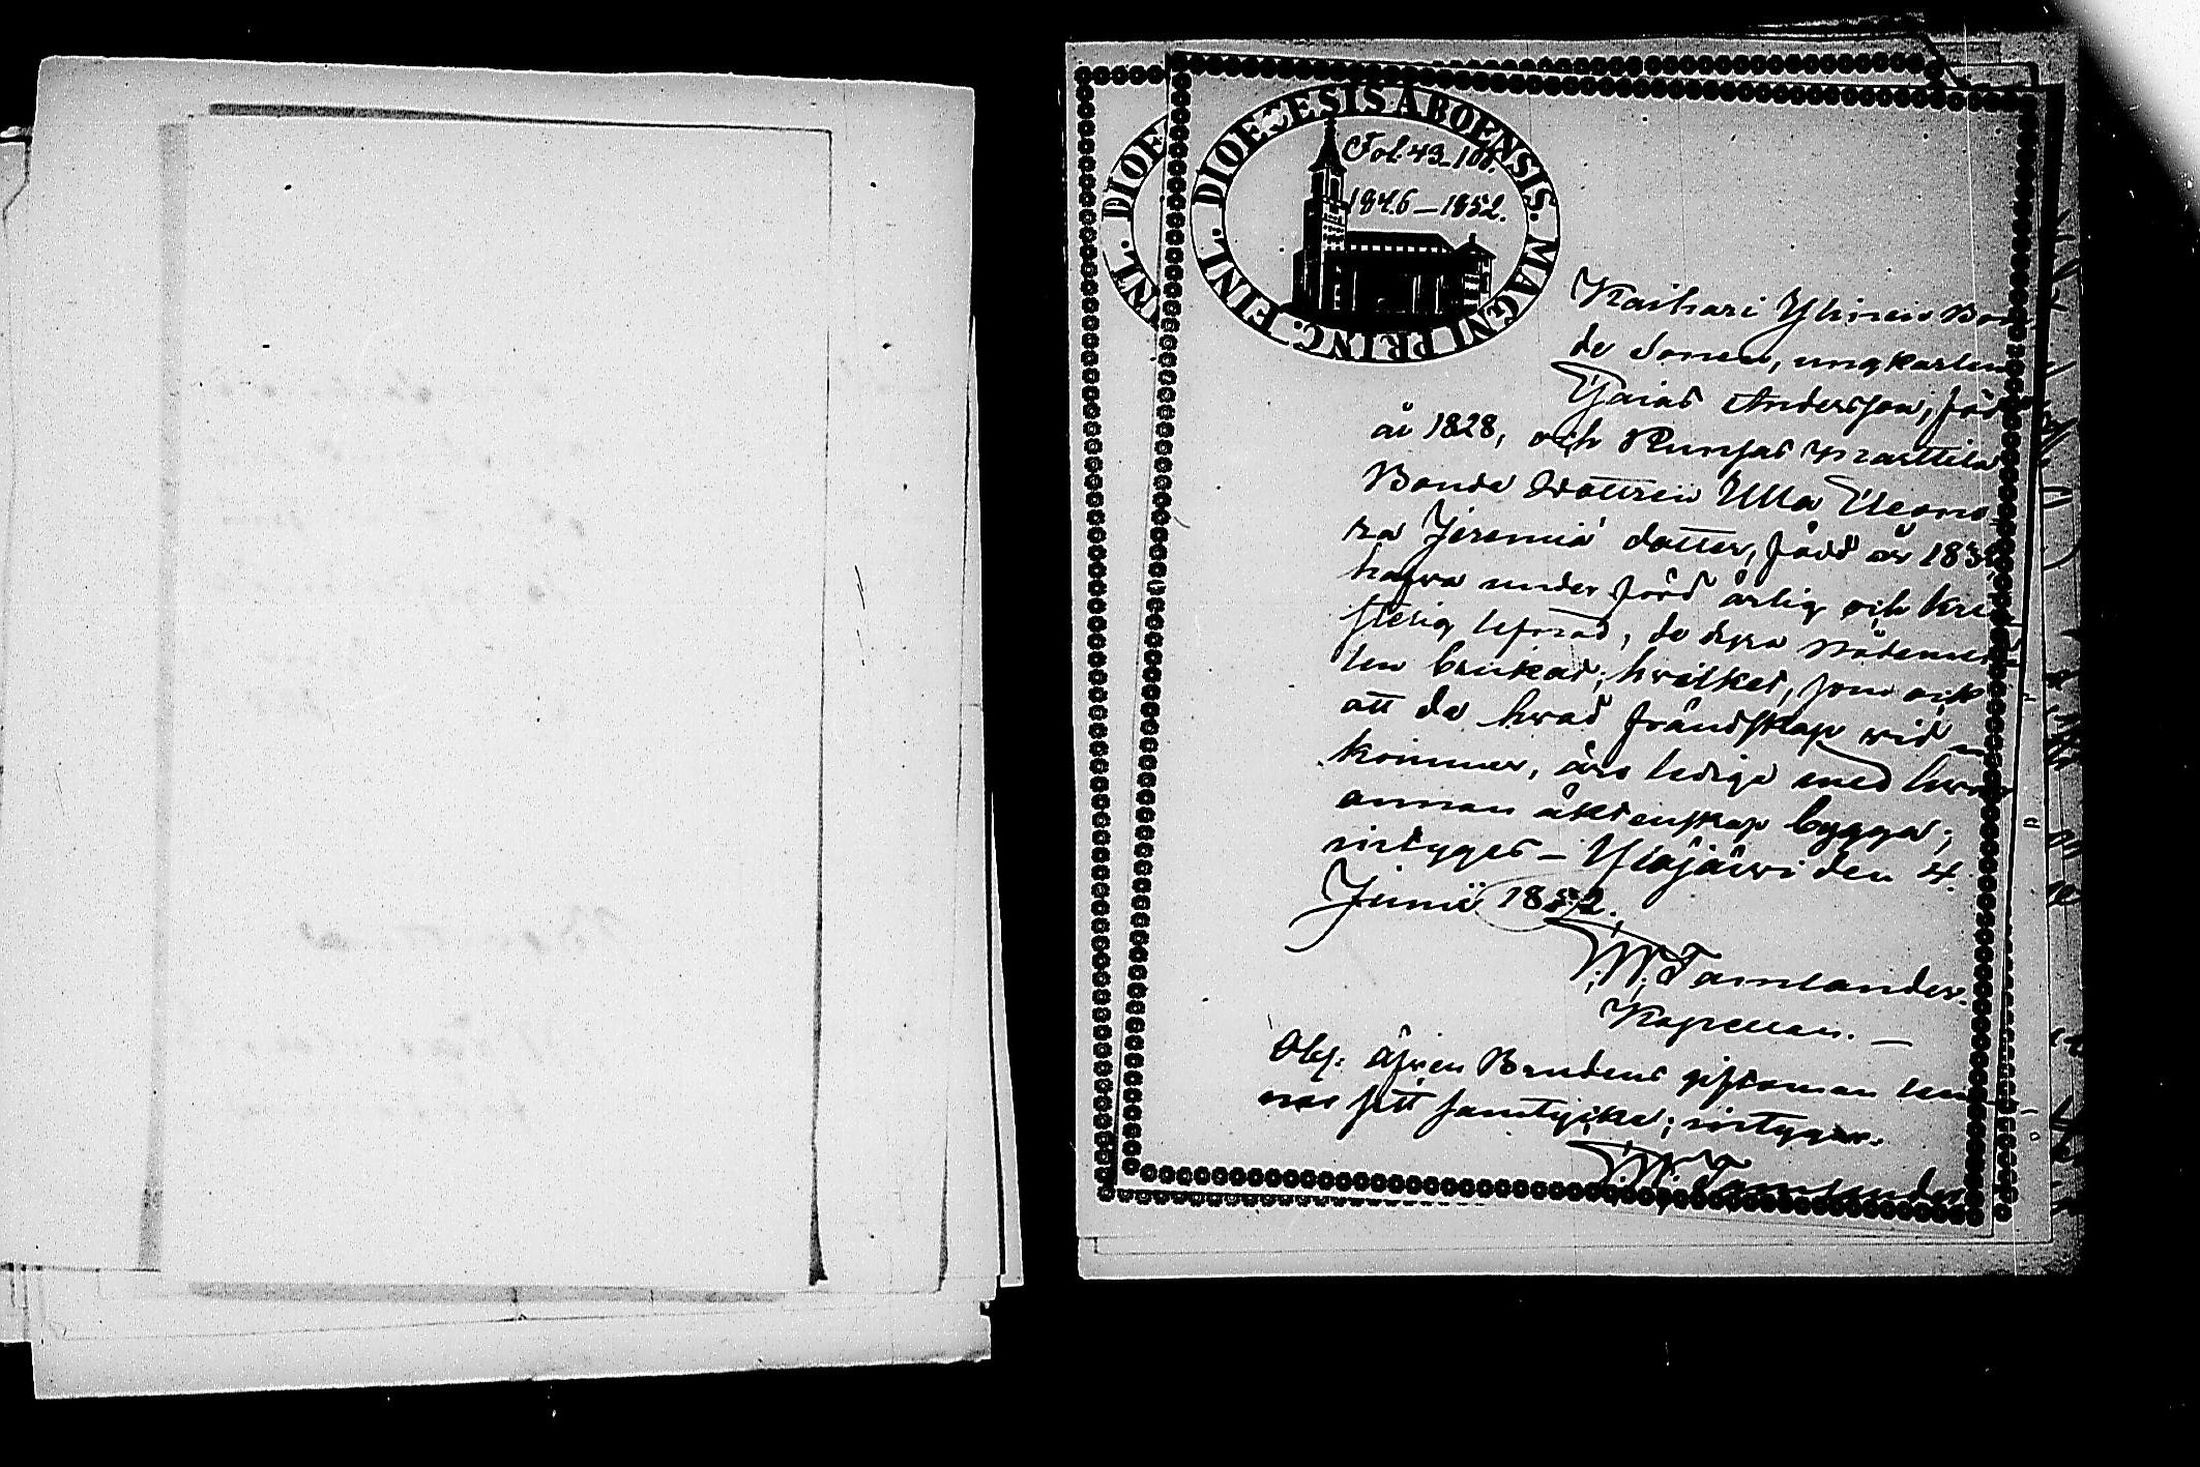 DIOECESIS ABOENSIS. MAGNI PRINC. FINL.
Fol. 43-100.
1846-1852.
Kaihari Ylineis Bon
de Sonen, ungkarlen
Esaias Andersson, föd
år 1828, och Runsas Marttila
Bonde Dottren Ulla Eleono
ra Jeremiæ dotter, född år 183
hafva under förd ärlig och kri
stelig lefnad, de dyra Nådemed
len brukat; hvilket, som ock
att de hvad frändskap vid
kommer, äro lediga med hvar
annan äktenskap bygga;
intygas - Ylöjärvi den 4.
Junii 1852.
Tamlander.
Kapellan. -
Obs: äfven Brudens giftoman lem
nar sitt samtycke; intygar.
Tamlander